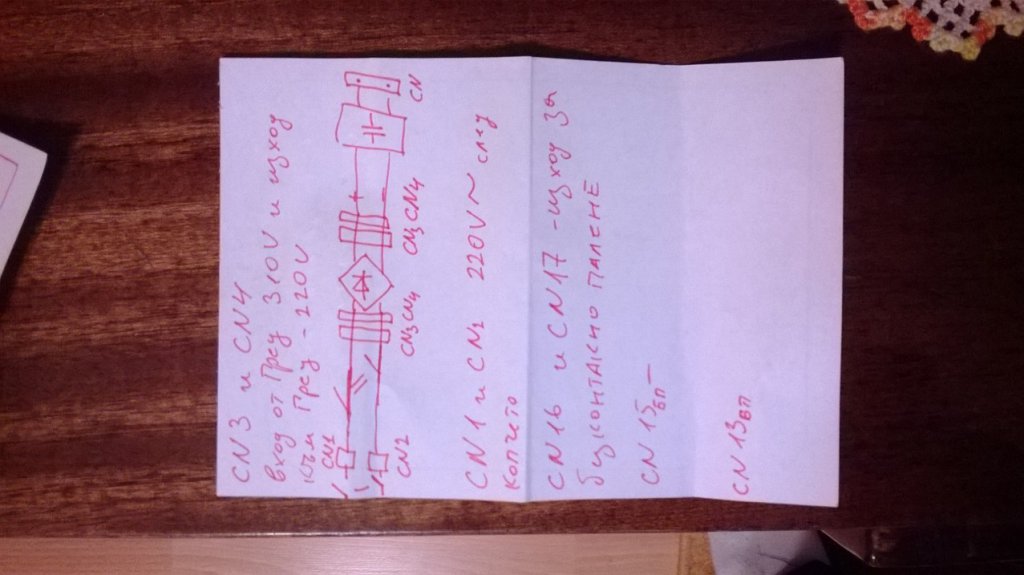 CN3 и CN4
вход от Грец 310V и изход
към Грец - 220V
CN1
CN2
CN3 CN4
CN3 CN4
+
-
CN
CN1 и CN2 220V~ след
копчето
CN16 и CN17 - изход за
безконтактно ПАЛЕНЕ
CN 15БП -
CN 13БП